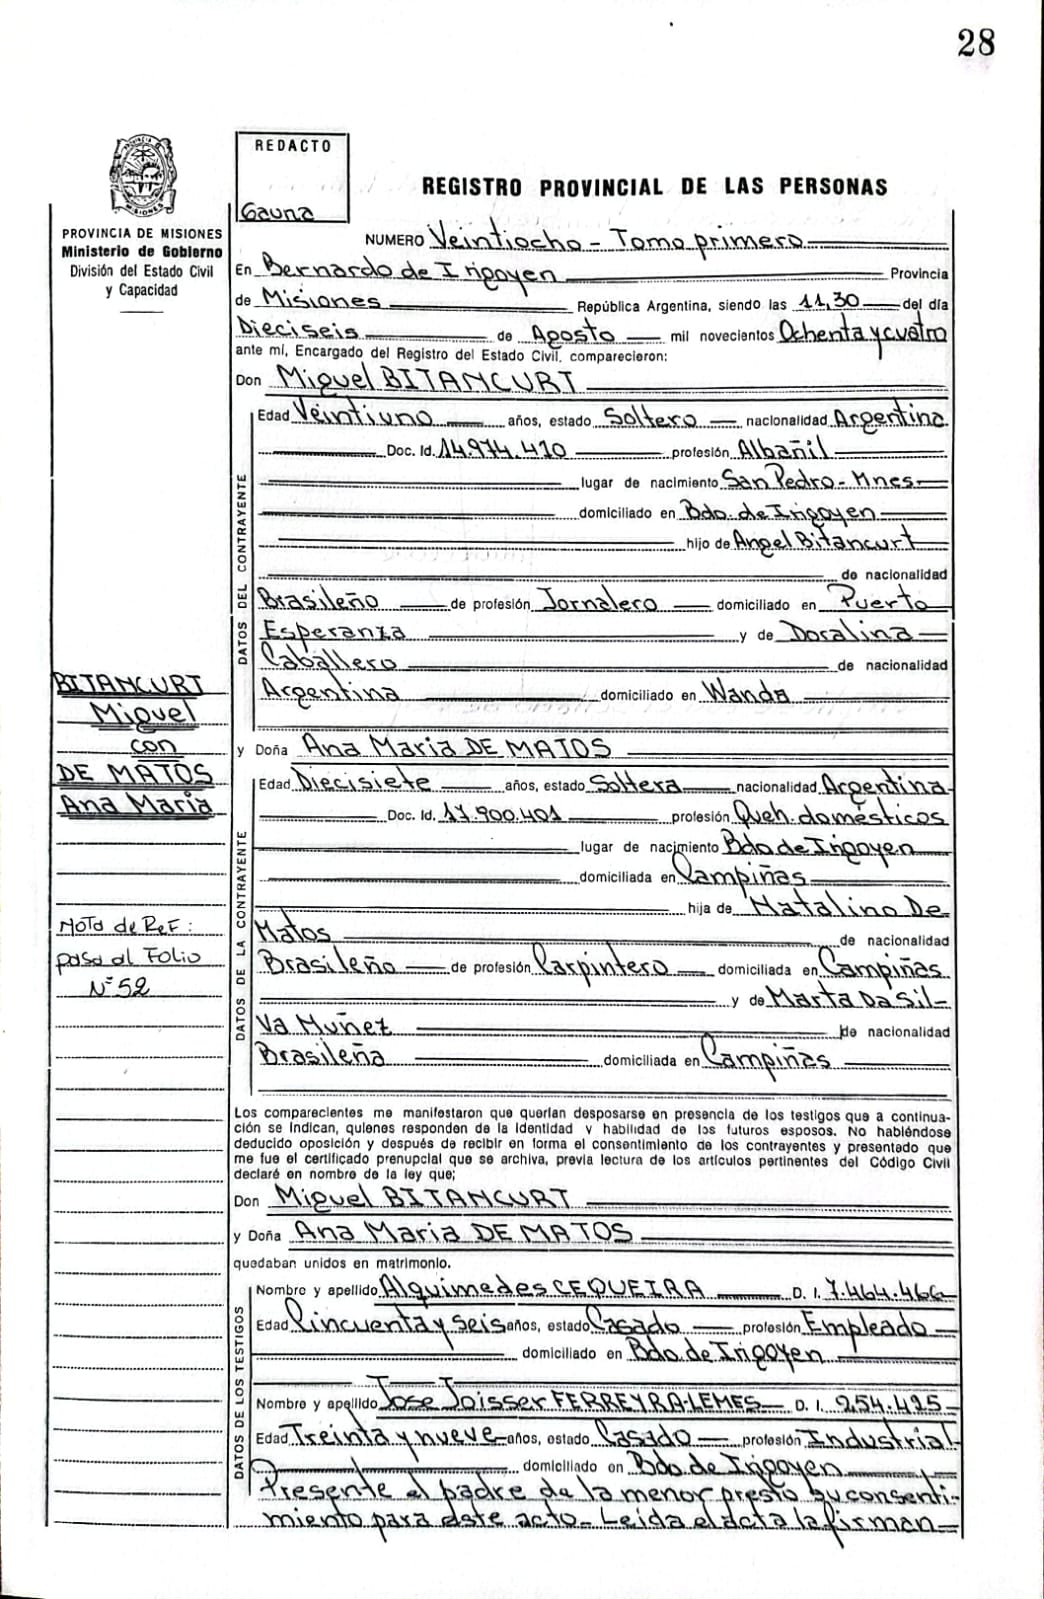 28
REDACTO
Gauna
REGISTRO PROVINCIAL DE LAS PERSONAS
PROVINCIA DE MISIONES
Ministerio de Gobierno
División del Estado Civil
y Capacidad
NUMERO Veintiocho - Tomo primero
En Bernardo de Irigoyen Provincia
de Misiones República Argentina, siendo las 11,30 del día
Dieciseis de Agosto mil novecientos Ochenta y cuatro
ante mí, Encargado del Registro del Estado Civil, comparecieron:
Don Miguel BITANCURT
DATOS DEL CONTRAYENTE
Edad Veintiuno años, estado Soltero nacionalidad Argentina
Doc. Id. 14.974.410 profesión Albañil
lugar de nacimiento San Pedro - Mnes
domiciliado en Bdo. de Irigoyen
hijo de Angel Bitancurt
de nacionalidad
Brasileño de profesión Jornalero domiciliado en Puerto
Esperanza y de Doralina
Caballero de nacionalidad
Argentina domiciliado en Wanda
BITANCURT
Miguel
con
DE MATOS
Ana Maria
y Doña Ana Maria DE MATOS
DATOS DE LA CONTRAYENTE
Edad Diecisiete años, estado Soltera nacionalidad Argentina
Doc. Id. 17.900.401 profesión Queh. domésticos
lugar de nacimiento Bdo de Irigoyen
domiciliada en Campiñas
hija de Natalino De
Matos de nacionalidad
Brasileño de profesión Carpintero domiciliada en Campiñas
y de Marta Da Sil-
va Muñez de nacionalidad
Brasileña domiciliada en Campiñas
Nota de Ref:
pasa al Folio
Nº 52
Los comparecientes me manifestaron que querían desposarse en presencia de los testigos que a continua-
ción se indican, quienes responden de la identidad y habilidad de los futuros esposos. No habiéndose
deducido oposición y después de recibir en forma el consentimiento de los contrayentes y presentado que
me fue el certificado prenupcial que se archiva, previa lectura de los artículos pertinentes del Código Civil
declaré en nombre de la ley que;
Don Miguel BITANCURT
y Doña Ana Maria DE MATOS
quedaban unidos en matrimonio.
DATOS DE LOS TESTIGOS
Nombre y apellido Alquimedes CEQUEIRA D. I. 7.464.466
Edad Cincuenta y seis años, estado Casado profesión Empleado
domiciliado en Bdo. de Irigoyen
Nombre y apellido Jose Joisser FERREYRA-LEMES D. I. 254.425
Edad Treinta y nueve años, estado Casado profesión Industrial
domiciliado en Bdo. de Irigoyen
Presente el padre de la menor presto su consenti-
miento para este acto - Leída el acta la firman